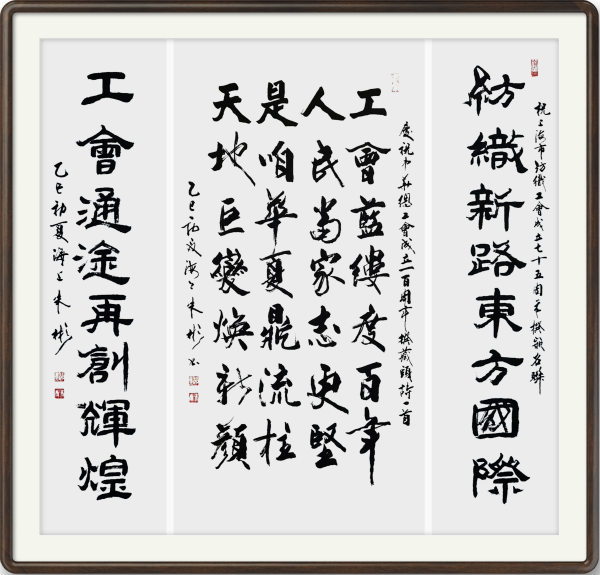 祝上海市紡織工會成立七十五周年撰嵌名聯
紡織新路東方國際
慶祝中華總工會成立一百周年撰藏頭詩一首
工會藍縷度百年
人民當家志更堅
是咱華夏鼎流柱
天地巨變煥新顏
乙巳初夏海上朱彬书
工會通途再創輝煌
乙巳初夏海上朱彬